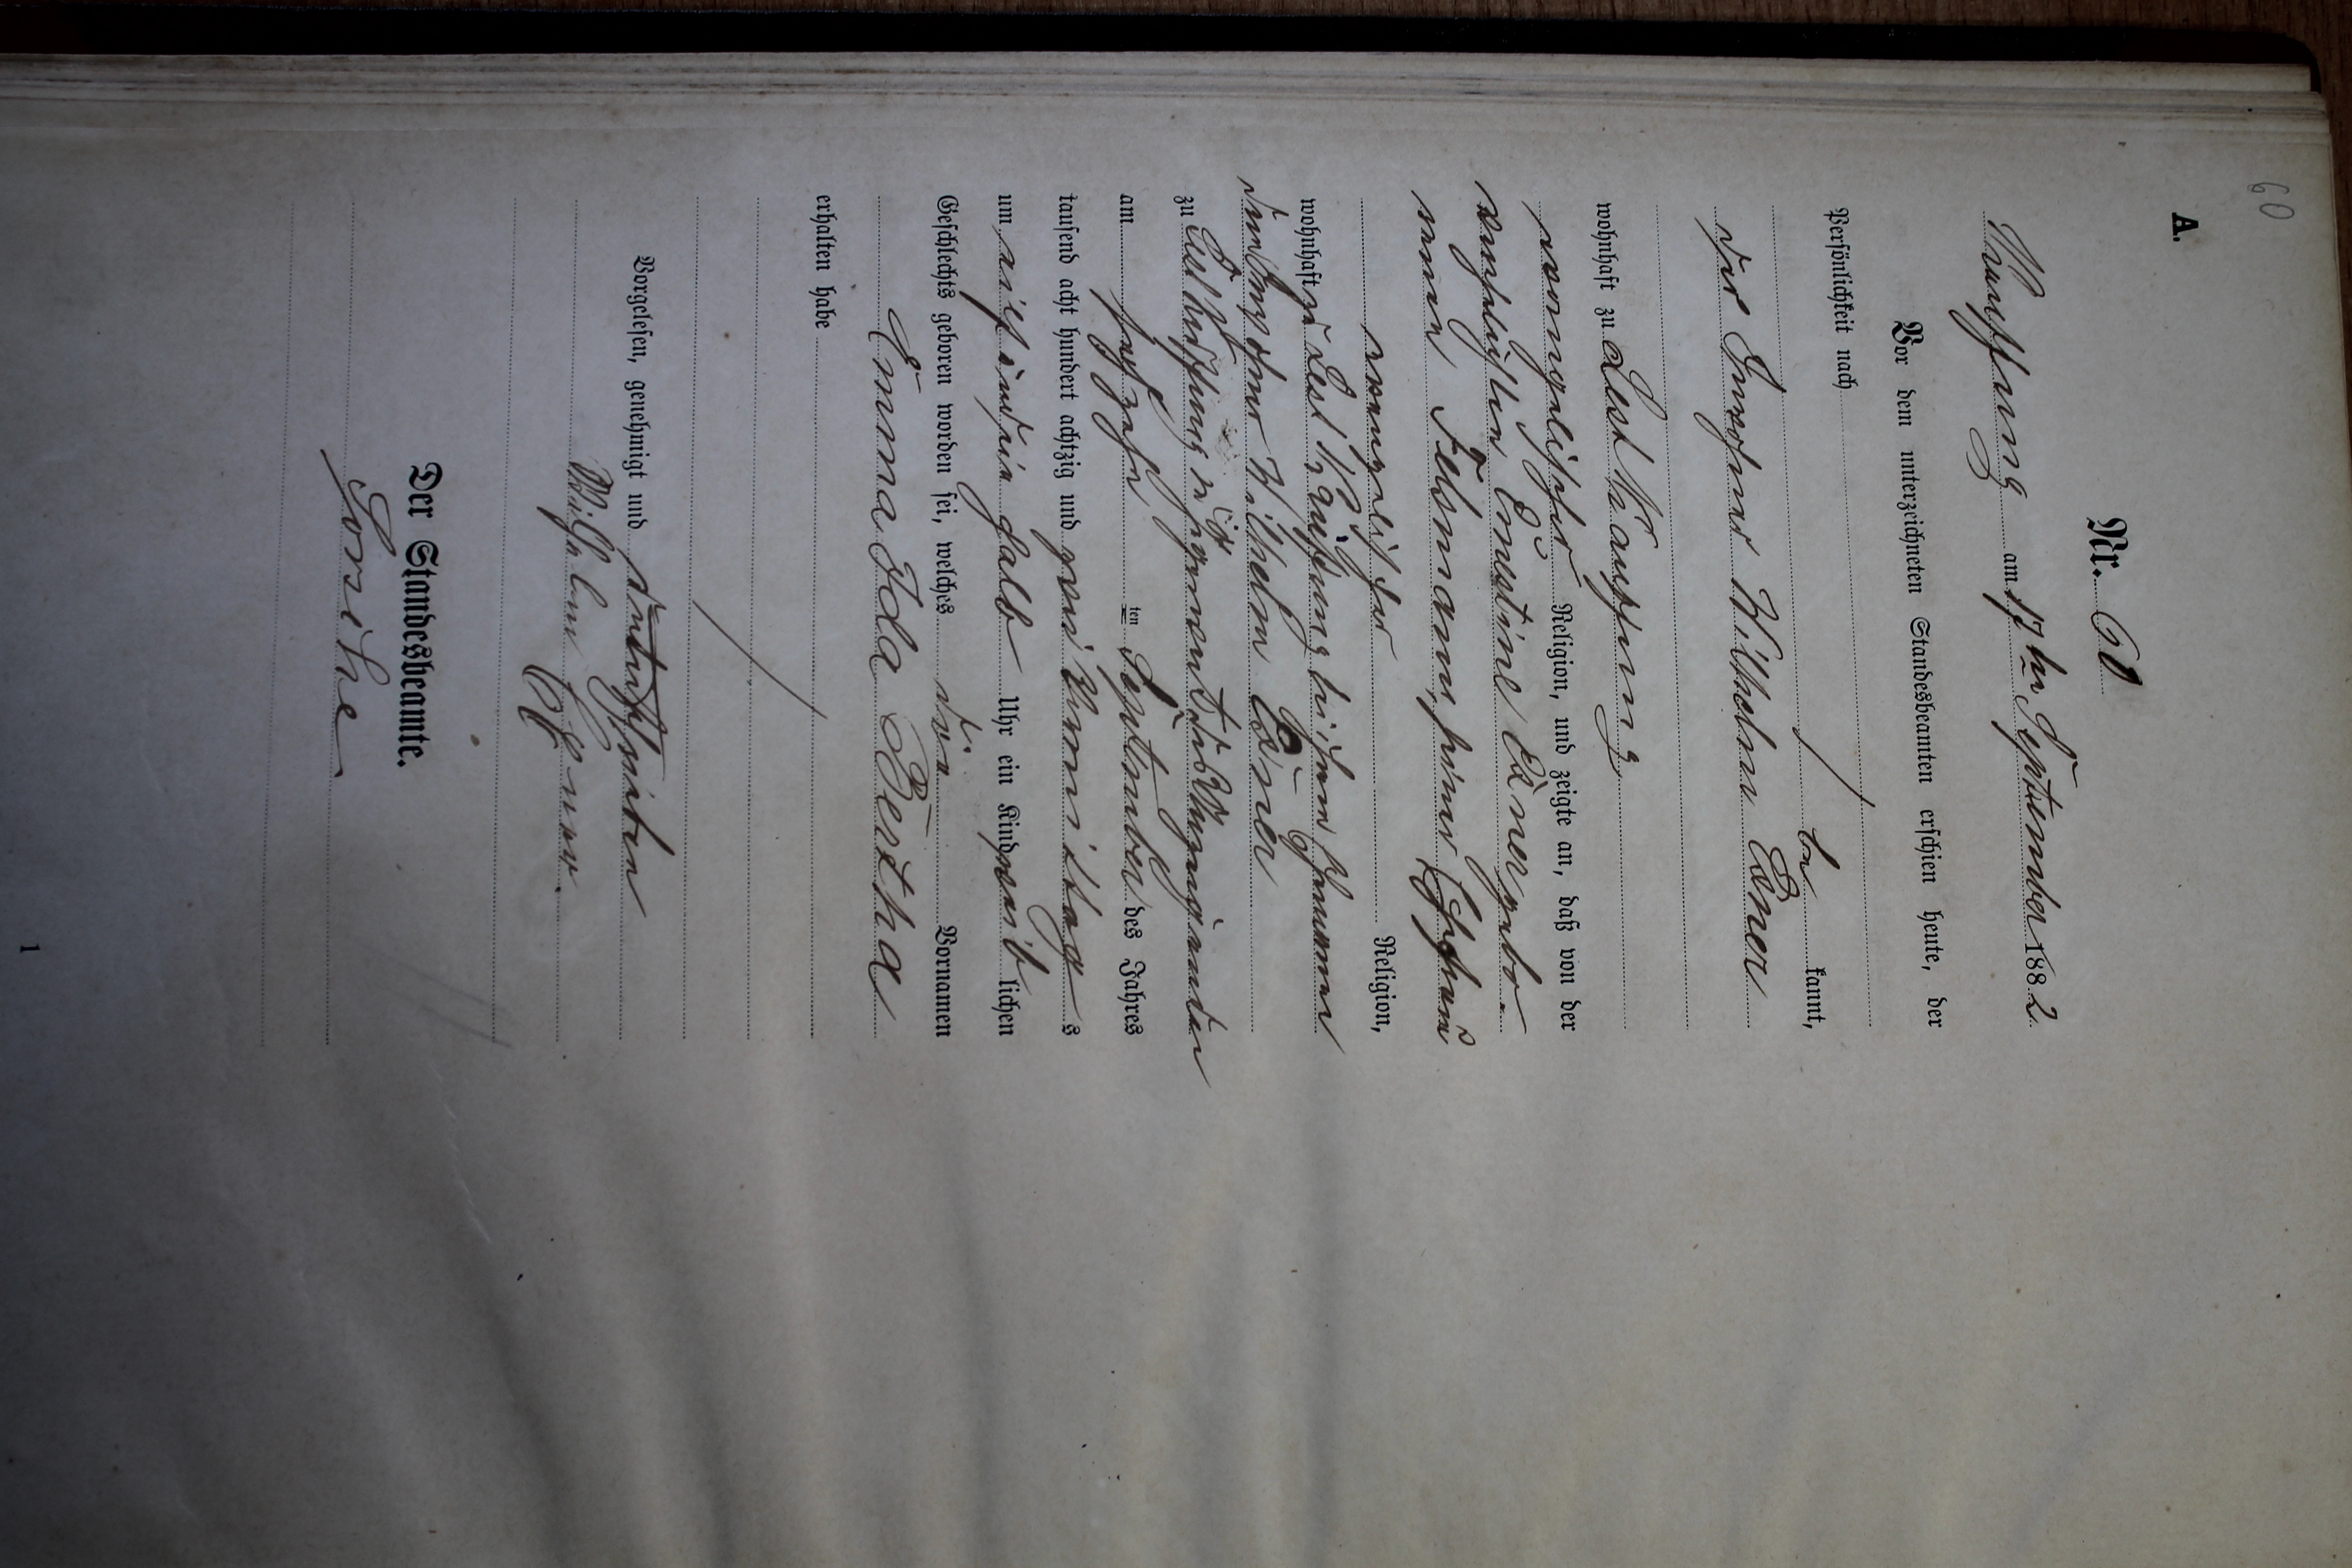 60
A.
Nr. 60
am 17ten September 1882
Vor dem unterzeichneten Standesbeamten erschien heute, der
Persönlichkeit nach
be kannt,
der Einwohner Wilhelm Exner
wohnhaft zu
evangelischer Religion, und zeigte an, daß von der
verehelichten Ernestine Exner gebo-
renen seiner Ehefrau
evangelischer Religion,
wohnhaft zu bei ihrem Ehemann
dem Einwohner Wilhelm Exner
zu in
am sechzehn ten September des Jahres
tausend acht hundert achtzig und zwei Vormittags
um acht einhalb Uhr ein Kind weib lichen
Geschlechts geboren worden sei, welches die Vornamen
Emma Ida Bertha
erhalten habe
Vorgelesen, genehmigt und unterschrieben
Wilhelm Exner
Der Standesbeamte.
1